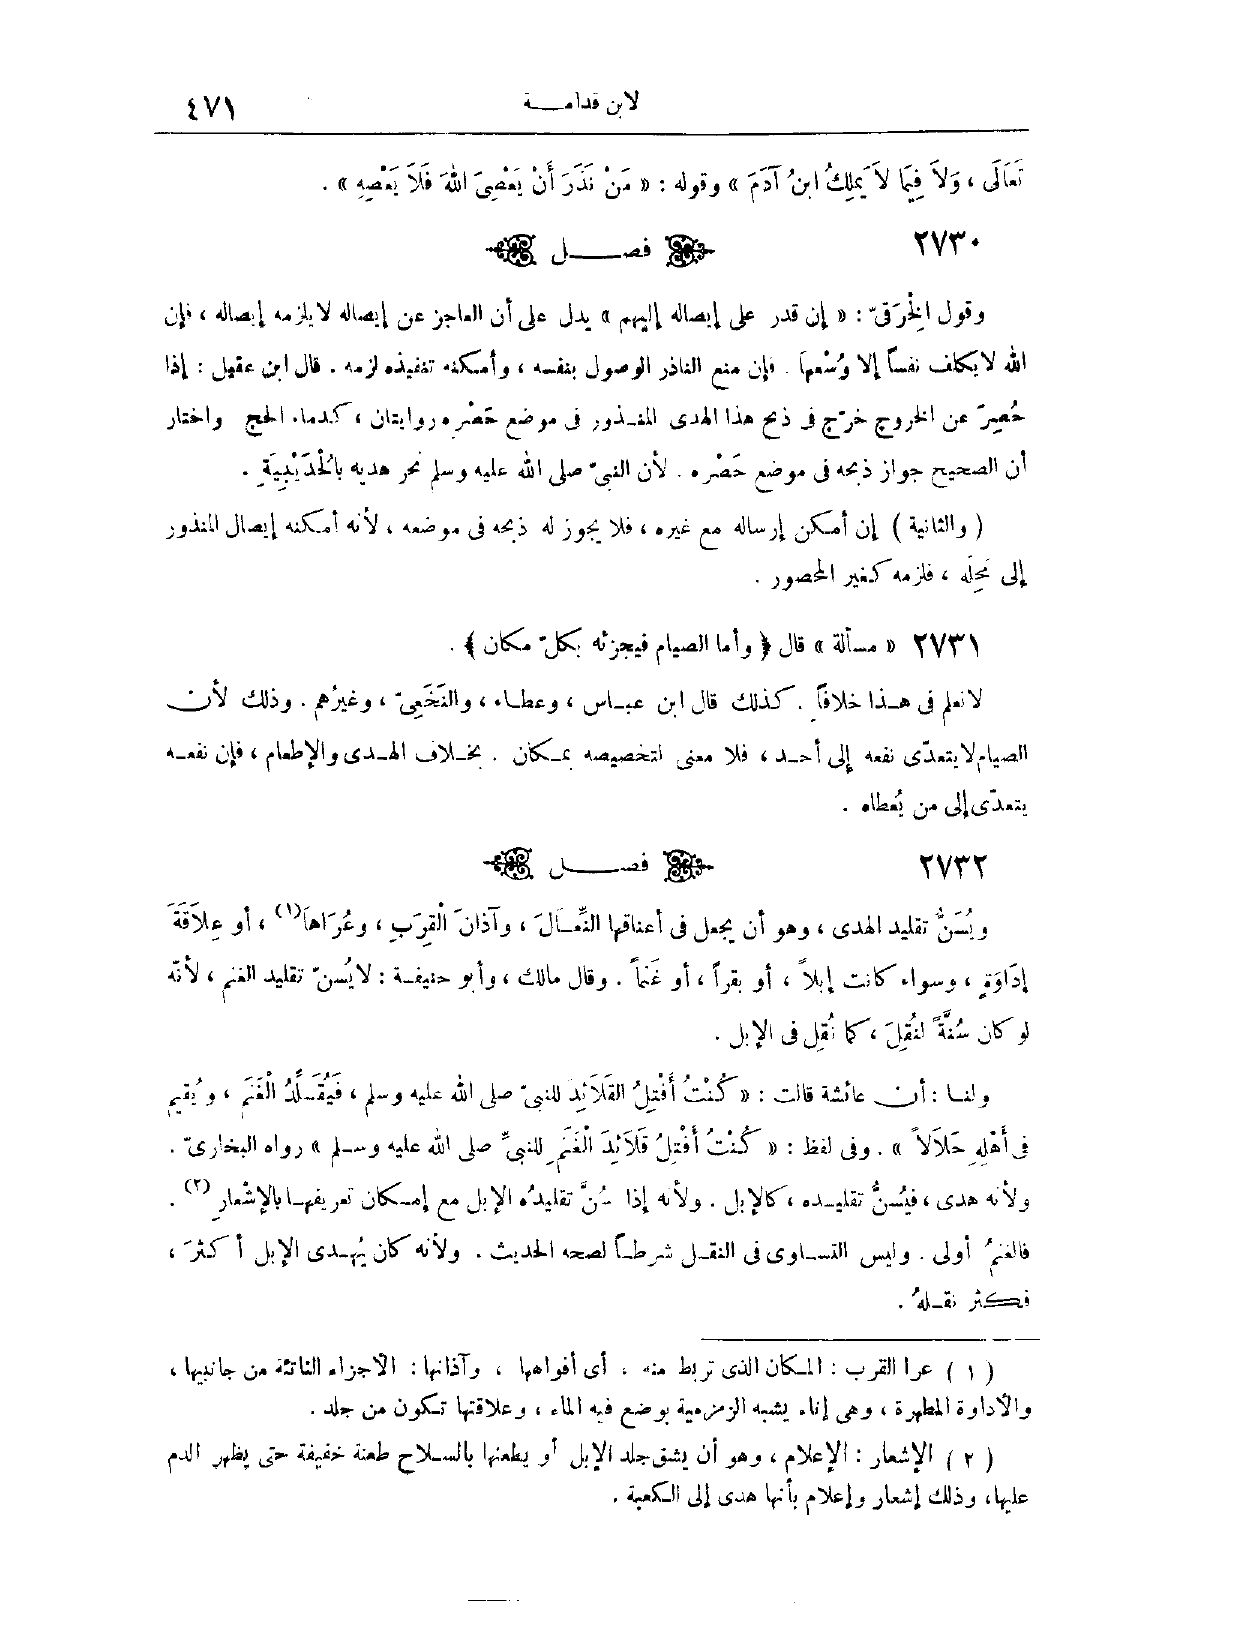 لابن قدامــة ٤٧١
تَعَالَى ، وَلاَ فِيمَا لاَ يَملِكُ ابنُ آدَمَ » وقوله : « مَنْ نَذَرَ أَنْ يَعْصِىَ اللهَ فَلاَ يَعْصِهِ » .
٢٧٣٠ فصــــل
وقول الخِرَقىّ : « إن قدر على إيصاله إليهم » يدل على أن العاجز عن إيصاله لا يلزمه إيصاله ، فإن
الله لا يكلف نفساً إلا وُسْعها . فإن منع الناذر الوصول بنفسه ، وأمكنه تنفيذه لزمه . قال ابن عقيل : إذا
حُصِرَ عن الخروج خرّج فى ذبح هذا الهدى المنـذور فى موضع حَصْره روايتان ، كدماء الحج واختار
أن الصحيح جواز ذبحه فى موضع حَصْره . لأن النبىّ صلى الله عليه وسلم نحر هديه بالْحُدَيْبِيَةِ .
( والثانية ) إن أمكن إرساله مع غيره ، فلا يجوز له ذبحه فى موضعه ، لأنه أمكنه إيصال المنذور
إلى مَحِلّه ، فلزمه كغير المحصور .
٢٧٣١ « مسألة » قال ﴿ وأما الصيام فيجزئه بكلّ مكان ﴾ .
لا نعلم فى هـذا خلافاً . كذلك قال ابن عبـاس ، وعطـاء ، والنَّخَعِىّ ، وغيرُهم . وذلك لأن
الصيام لا يتعدّى نفعه إلى أحـد ، فلا معنى لتخصيصه بمـكان . بخـلاف الهـدى والإطعام ، فإن نفعـه
يتعدّى إلى من يُعطاه .
٢٧٣٢ فصــــل
ويُسَنُّ تقليد الهدى ، وهو أن يجعل فى أعناقها النِّعـَالَ ، وآذانَ الْقِرَبِ ، وعُرَاهاَ(١) ، أو عِلاَقَةَ
إدَاوَةٍ ، وسواء كانت إبلاً ، أو بقراً ، أو غَنماً . وقال مالك ، وأبو حنيفـة : لا يُسنّ تقليد الغنم ، لأنه
لو كان سُنَّةً لنُقِلَ ، كما نُقِل فى الإبل .
ولنـا : أن عائشة قالت : « كُنْتُ أَفْتِلُ القَلاَئِدَ للنبىّ صلى الله عليه وسلم ، فَيُقَـلِّدُ الْغَنَمَ ، ويُقيم
فى أَهْلِهِ حَلاَلاً » . وفى لفظ : « كُنْتُ أَفْتِلُ قَلاَئِدَ الْغَنَمِ للنبىِّ صلى الله عليه وسـلم » رواه البخارىّ .
ولأنه هدى ، فيُسنُّ تقليـده ، كالإبل . ولأنه إذا سُنَّ تقليدُه الإبل مع إمـكان تعريفهـا بالإشعارِ (٢) .
فالغنمُ أولى . وليس التسـاوى فى النقـل شرطـاً لصحه الحديث . ولأنه كان يُهـدى الإبل أكثرَ ،
فكثر نقـلهُ .
( ١ ) عرا القرب : المـكان الذى تربط منه ، أى أفواهها ، وآذانها : الأجزاء الناتئة من جانبيها ،
والاداوة المطهرة ، وهى إناء يشبه الزمزمية يوضع فيه الماء ، وعلاقتها تـكون من جلد .
( ٢ ) الإشعار : الإعلام ، وهو أن يشق جلد الإبل أو يطعنها بالسـلاح طعنة خفيفة حتى يظهر الدم
عليها، وذلك إشعار وإعلام بأنها هدى إلى الـكعبة .